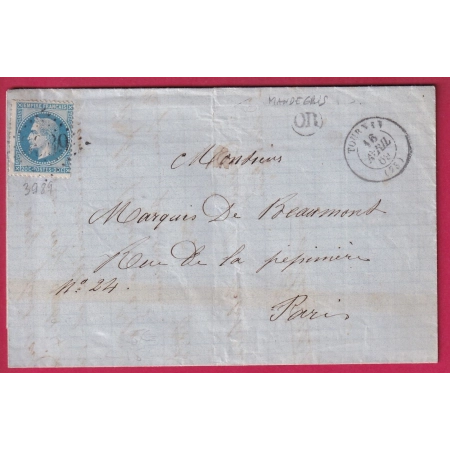 EMPIRE FRANÇAIS
MANDEGRIS
OR
TOURNAY
16
AVRIL
69
3984
Monsieur
Marquis De Beaumont
Rue de la pepinière
N° 24.
Paris